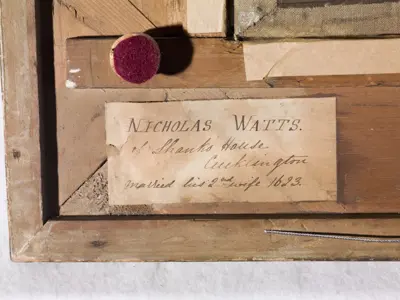 NICHOLAS WATTS.
of Shanks House
Cucklington
married his 2nd wife 1693.